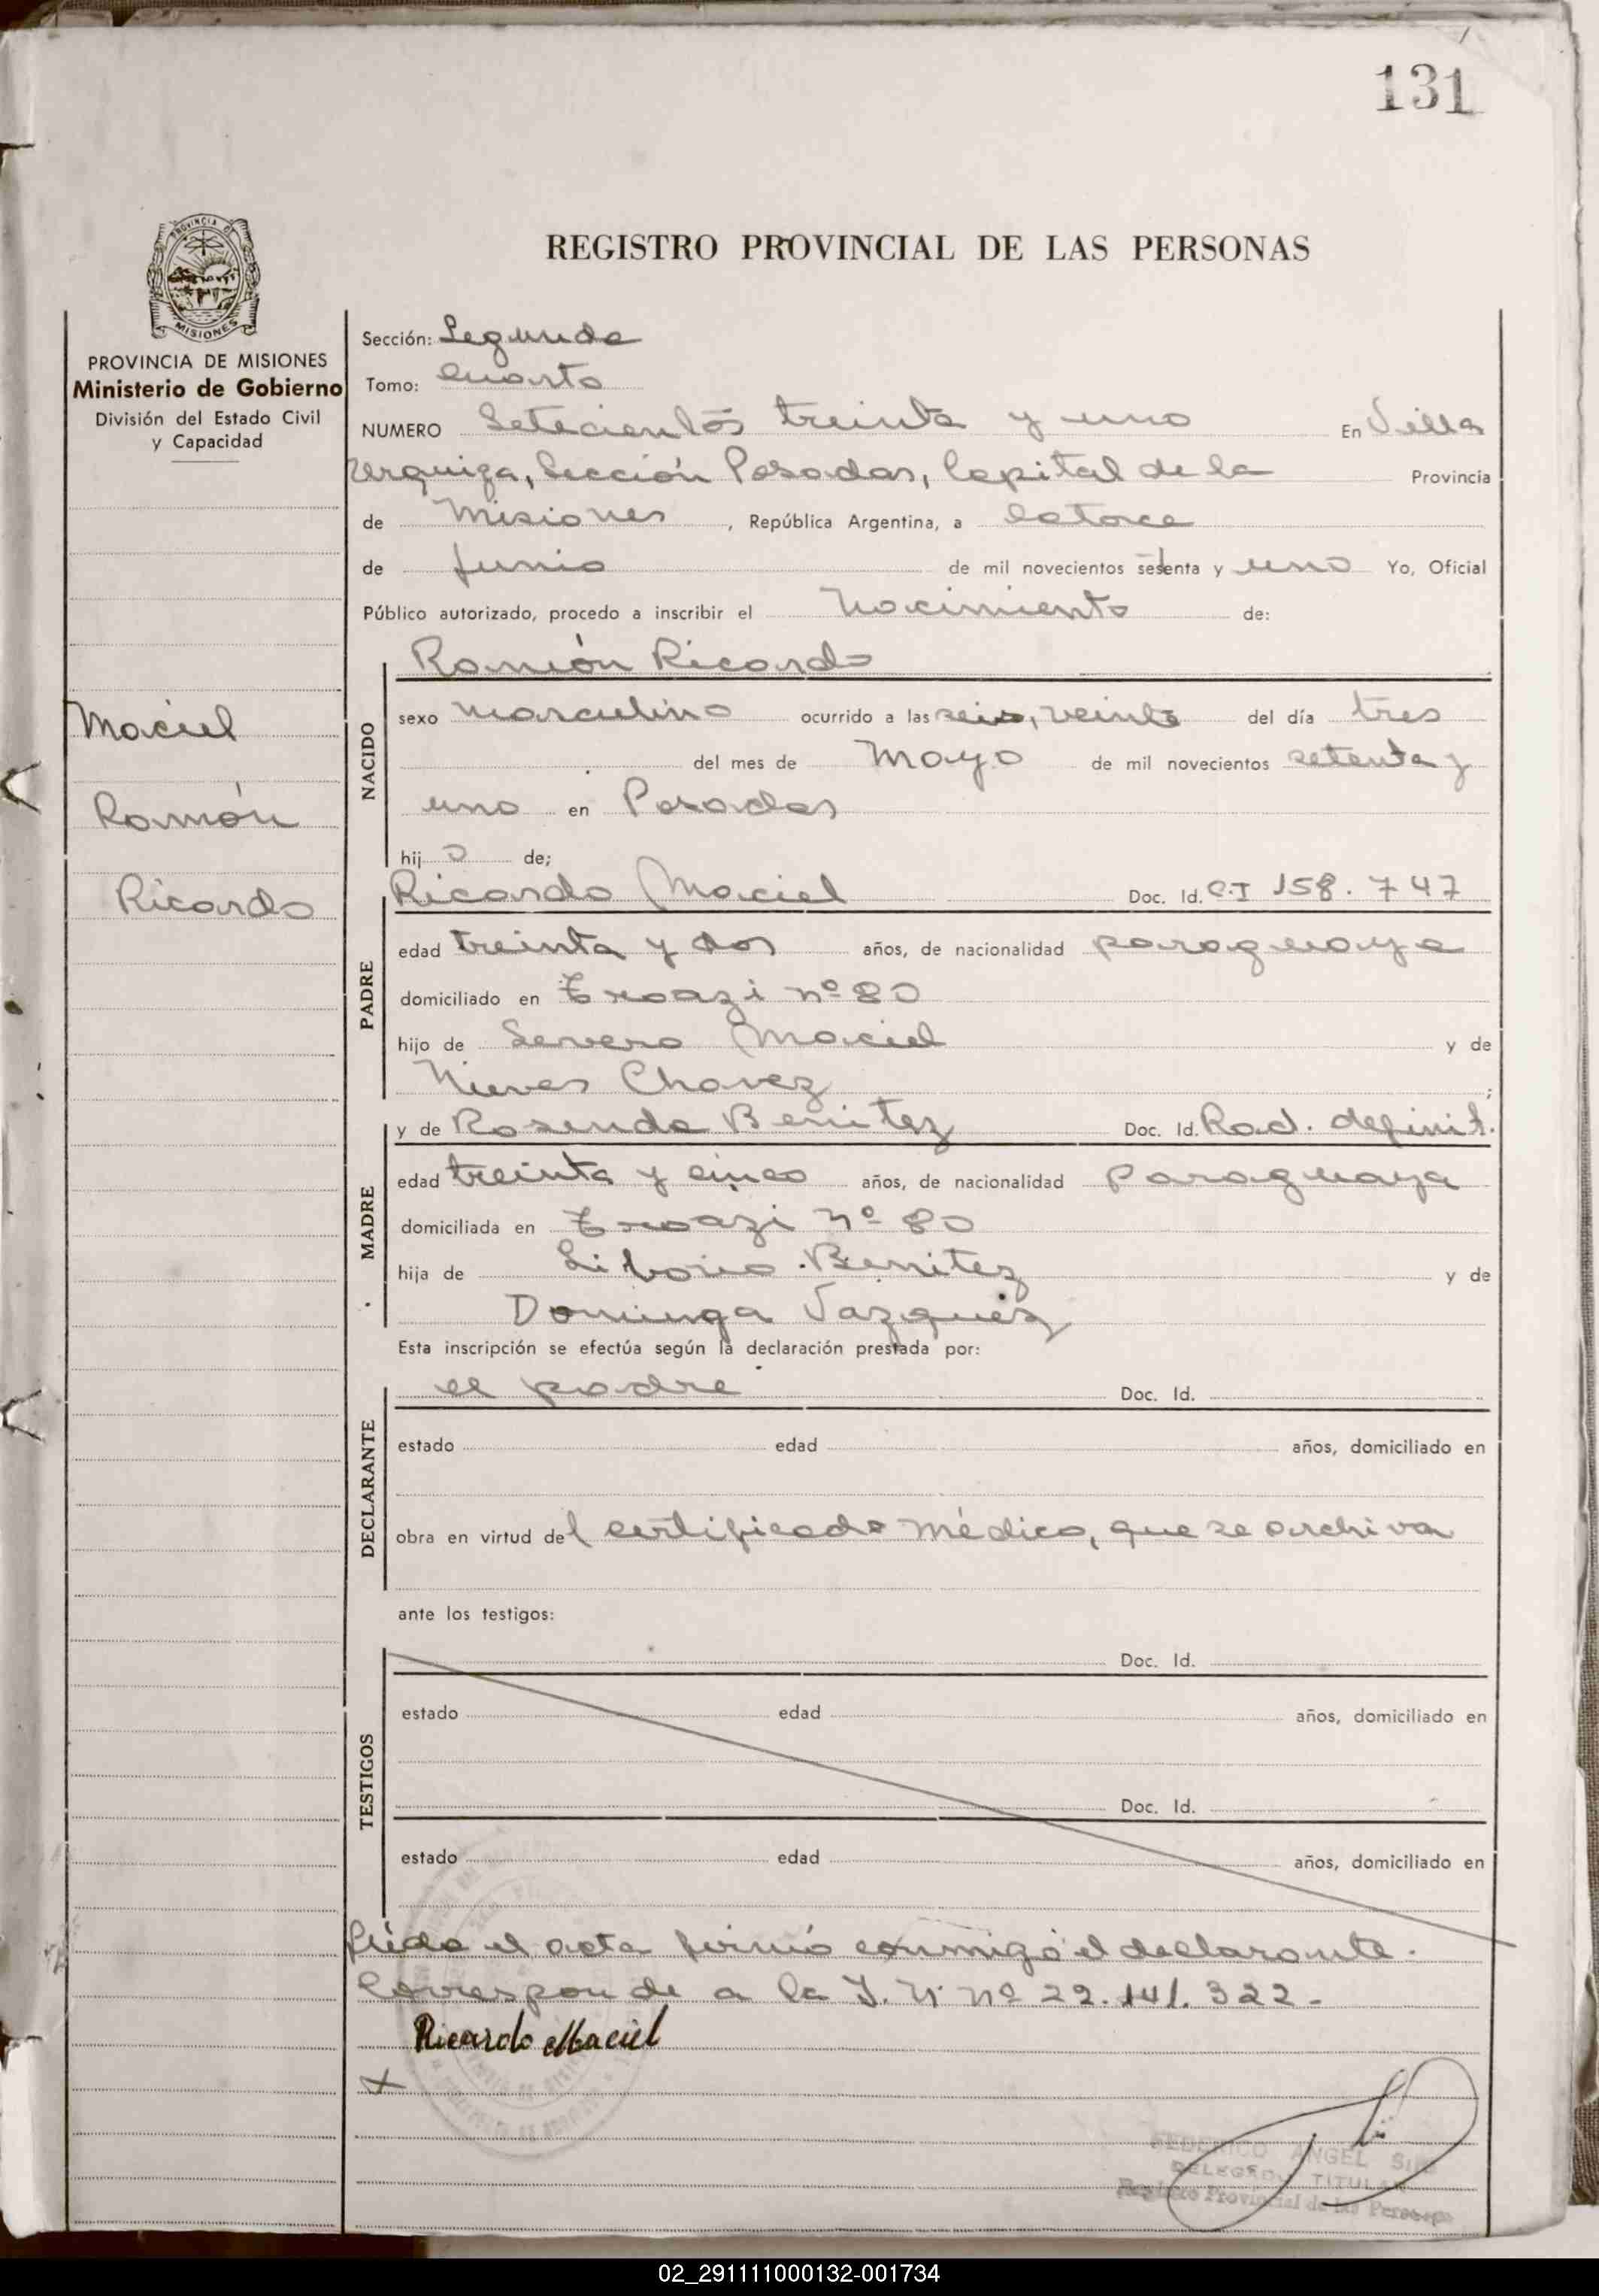 131
REGISTRO PROVINCIAL DE LAS PERSONAS
PROVINCIA DE MISIONES
Ministerio de Gobierno
División del Estado Civil
y Capacidad
Sección: Segunda
Tomo: Cuarto
NUMERO Setecientos treinta y uno En Villa
Urquiza, Sección Posadas, Capital de la Provincia
de Misiones, República Argentina, a catorce
de Junio de mil novecientos setenta y uno Yo, Oficial
Público autorizado, procedo a inscribir el Nacimiento de:
Maciel
Ramón
Ricardo
NACIDO
Ramón Ricardo
sexo masculino ocurrido a las seis, veinte del día tres
del mes de Mayo de mil novecientos setenta y
uno en Posadas
hijo de;
PADRE
Ricardo Maciel Doc. Id. C.I 158.747
edad treinta y dos años, de nacionalidad paraguaya
domiciliado en nº 80
hijo de Severo Maciel y de
Nieves Chavez;
MADRE
y de Rosenda Benitez Doc. Id. Rad. definit.
edad treinta y cinco años, de nacionalidad paraguaya
domiciliada en nº 80
hija de Liborio Benitez y de
Dominga Vazquez
Esta inscripción se efectúa según la declaración prestada por:
DECLARANTE
el padre Doc. Id.
estado edad años, domiciliado en
obra en virtud del certificado médico, que se archiva
ante los testigos:
TESTIGOS
Doc. Id.
estado edad años, domiciliado en
Doc. Id.
estado edad años, domiciliado en
Leída el acta firmó conmigo el declarante.
Corresponde a la I. N. nº 22.141.322-
Ricardo Maciel
FEDERICO ANGEL
DELEGADO TITULAR
Registro Provincial de las Personas
02_291111000132-001734